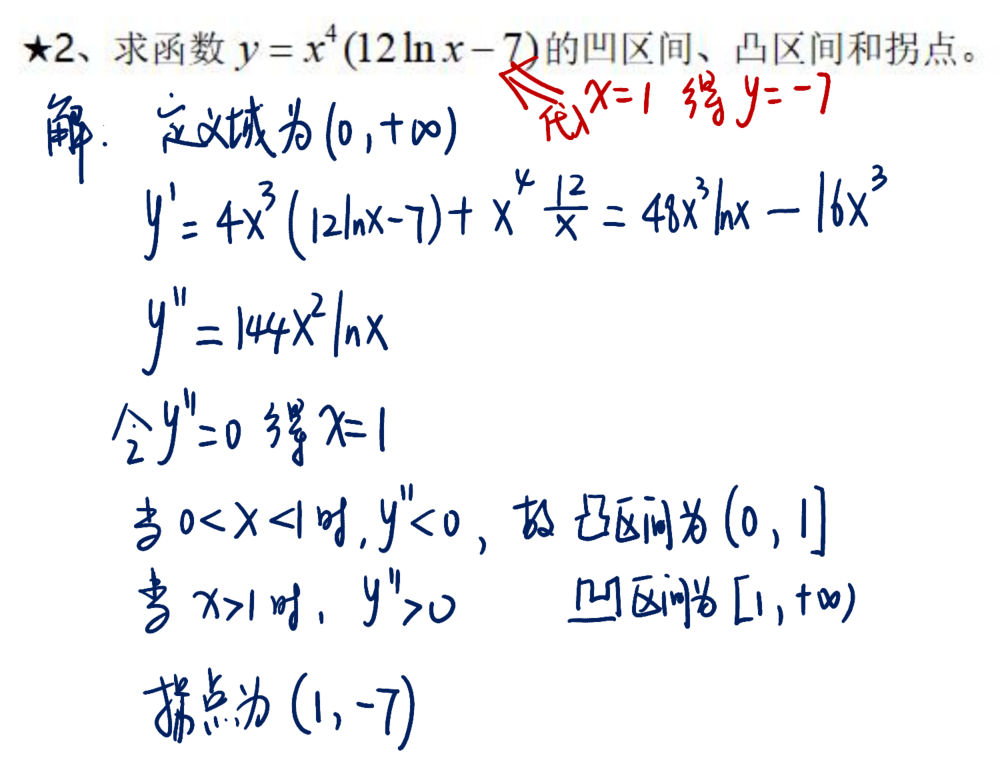 ★2、求函数 y = x⁴(12 ln x − 7)的凹区间、凸区间和拐点。
代入 x=1 得 y=-7
解: 定义域为(0,+∞)
y' = 4x³(12lnx-7)+ x⁴ 12/x = 48x³lnx − 16x³
y'' = 144x²lnx
令y''=0 得 x=1
当 0<x<1时, y''<0, 故 凸区间为(0, 1]
当 x>1时, y''>0 凹区间为[1,+∞)
拐点为(1,-7)